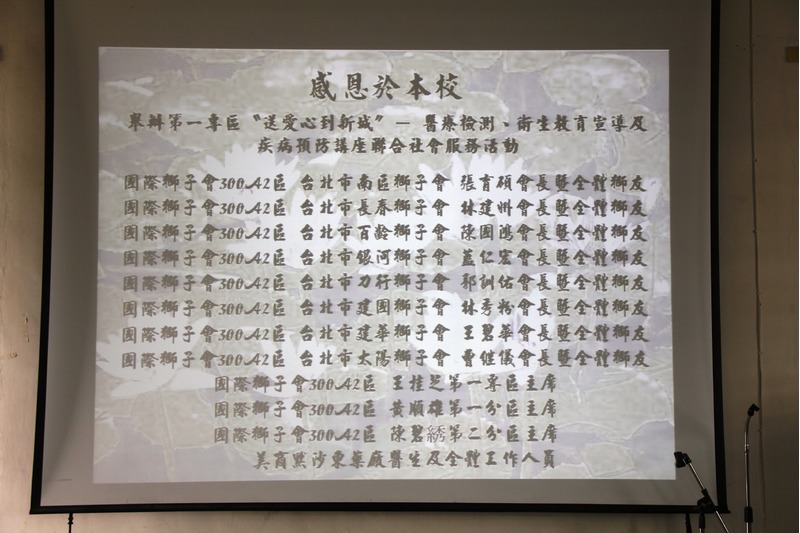 感恩於本校
舉辦第一專區〝送愛心到新城〞－ 醫療檢測、衛生教育宣導及
疾病預防講座聯合社會服務活動
國際獅子會300A2區 台北市南區獅子會 張育碩會長暨全體獅友
國際獅子會300A2區 台北市長春獅子會 林建州會長暨全體獅友
國際獅子會300A2區 台北市百齡獅子會 陳國鴻會長暨全體獅友
國際獅子會300A2區 台北市銀河獅子會 藍仁宏會長暨全體獅友
國際獅子會300A2區 台北市力行獅子會 郭訓佑會長暨全體獅友
國際獅子會300A2區 台北市建國獅子會 林秀粉會長暨全體獅友
國際獅子會300A2區 台北市建華獅子會 王碧華會長暨全體獅友
國際獅子會300A2區 台北市太陽獅子會 曹繼儀會長暨全體獅友
國際獅子會300A2區 王桂芝第一專區主席
國際獅子會300A2區 黃順雄第一分區主席
國際獅子會300A2區 陳碧綉第二分區主席
美商默沙東藥廠醫生及全體工作人員